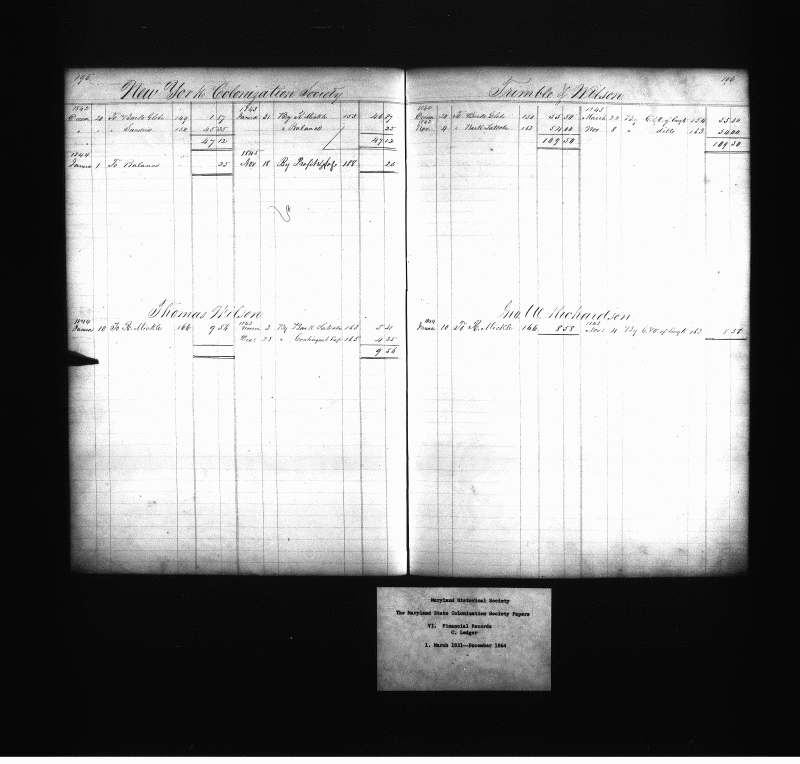 196
New York Colonization Society
1842 1843
20 To 149 1 87 31 By R. Mickle 153 46 87
" " Sundries 150 45 25 " Balance 25
47 12 47 12
1844 1845
1 To Balance 25 Nov 18 By Profit & Loss 188 25
Thomas Wilson
1844 1843
10 To R. Mickle 166 9 56 3 By Bark Latrobe 163 5 21
23 " Contingent Exp 165 4 35
9 56
196
Trimble & Wilson
1843
20 To 150 55 50 March 22 By 154 55 50
Nov. 4 " Bark Latrobe 163 54 00 Nov 8 " ditto 163 54 00
109 50 109 50
Richardson
1844 1843
10 To R. Mickle 166 8 58 Nov. 4 By 163 8 58
Maryland Historical Society
The Maryland State Colonization Society Papers
VI. Financial Records
C. Ledger
1. March 1831--December 1864